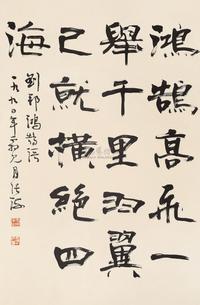 鴻鵠高飛一
舉千里羽翼
已就橫絕四
海
劉邦鴻鵠歌
一九九〇年